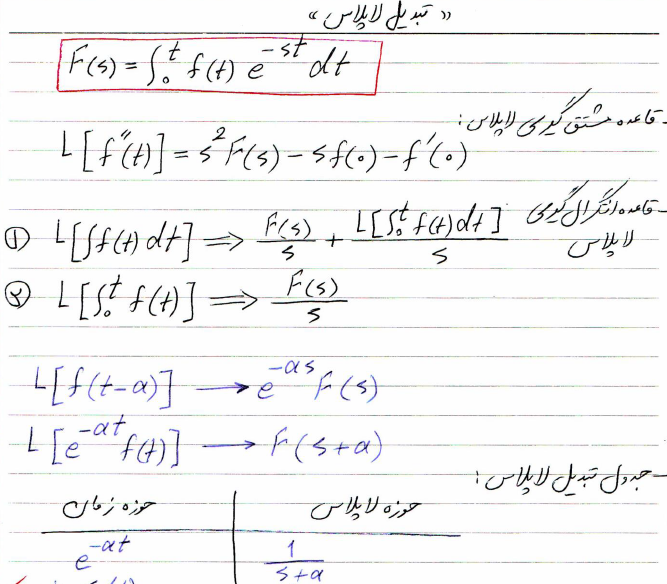 « تبدیل لاپلاس »
F(s) = ∫₀ᵗ f(t) e^{-st} dt
- قاعده مشتق گیری لاپلاس :
L[f″(t)] = s² F(s) - s f(0) - f′(0)
- قاعده انتگرال گیری لاپلاس
① L[∫f(t) dt] ⇒ F(s)/s + L[∫₀ᵗ f(t) dt]/s
② L[∫₀ᵗ f(t)] ⇒ F(s)/s
L[f(t-α)] → e^{-αs} F(s)
L[e^{-αt} f(t)] → F(s+α)
- جدول تبدیل لاپلاس :
حوزه لاپلاس | حوزه زمان
e^{-αt} | 1/(s+α)